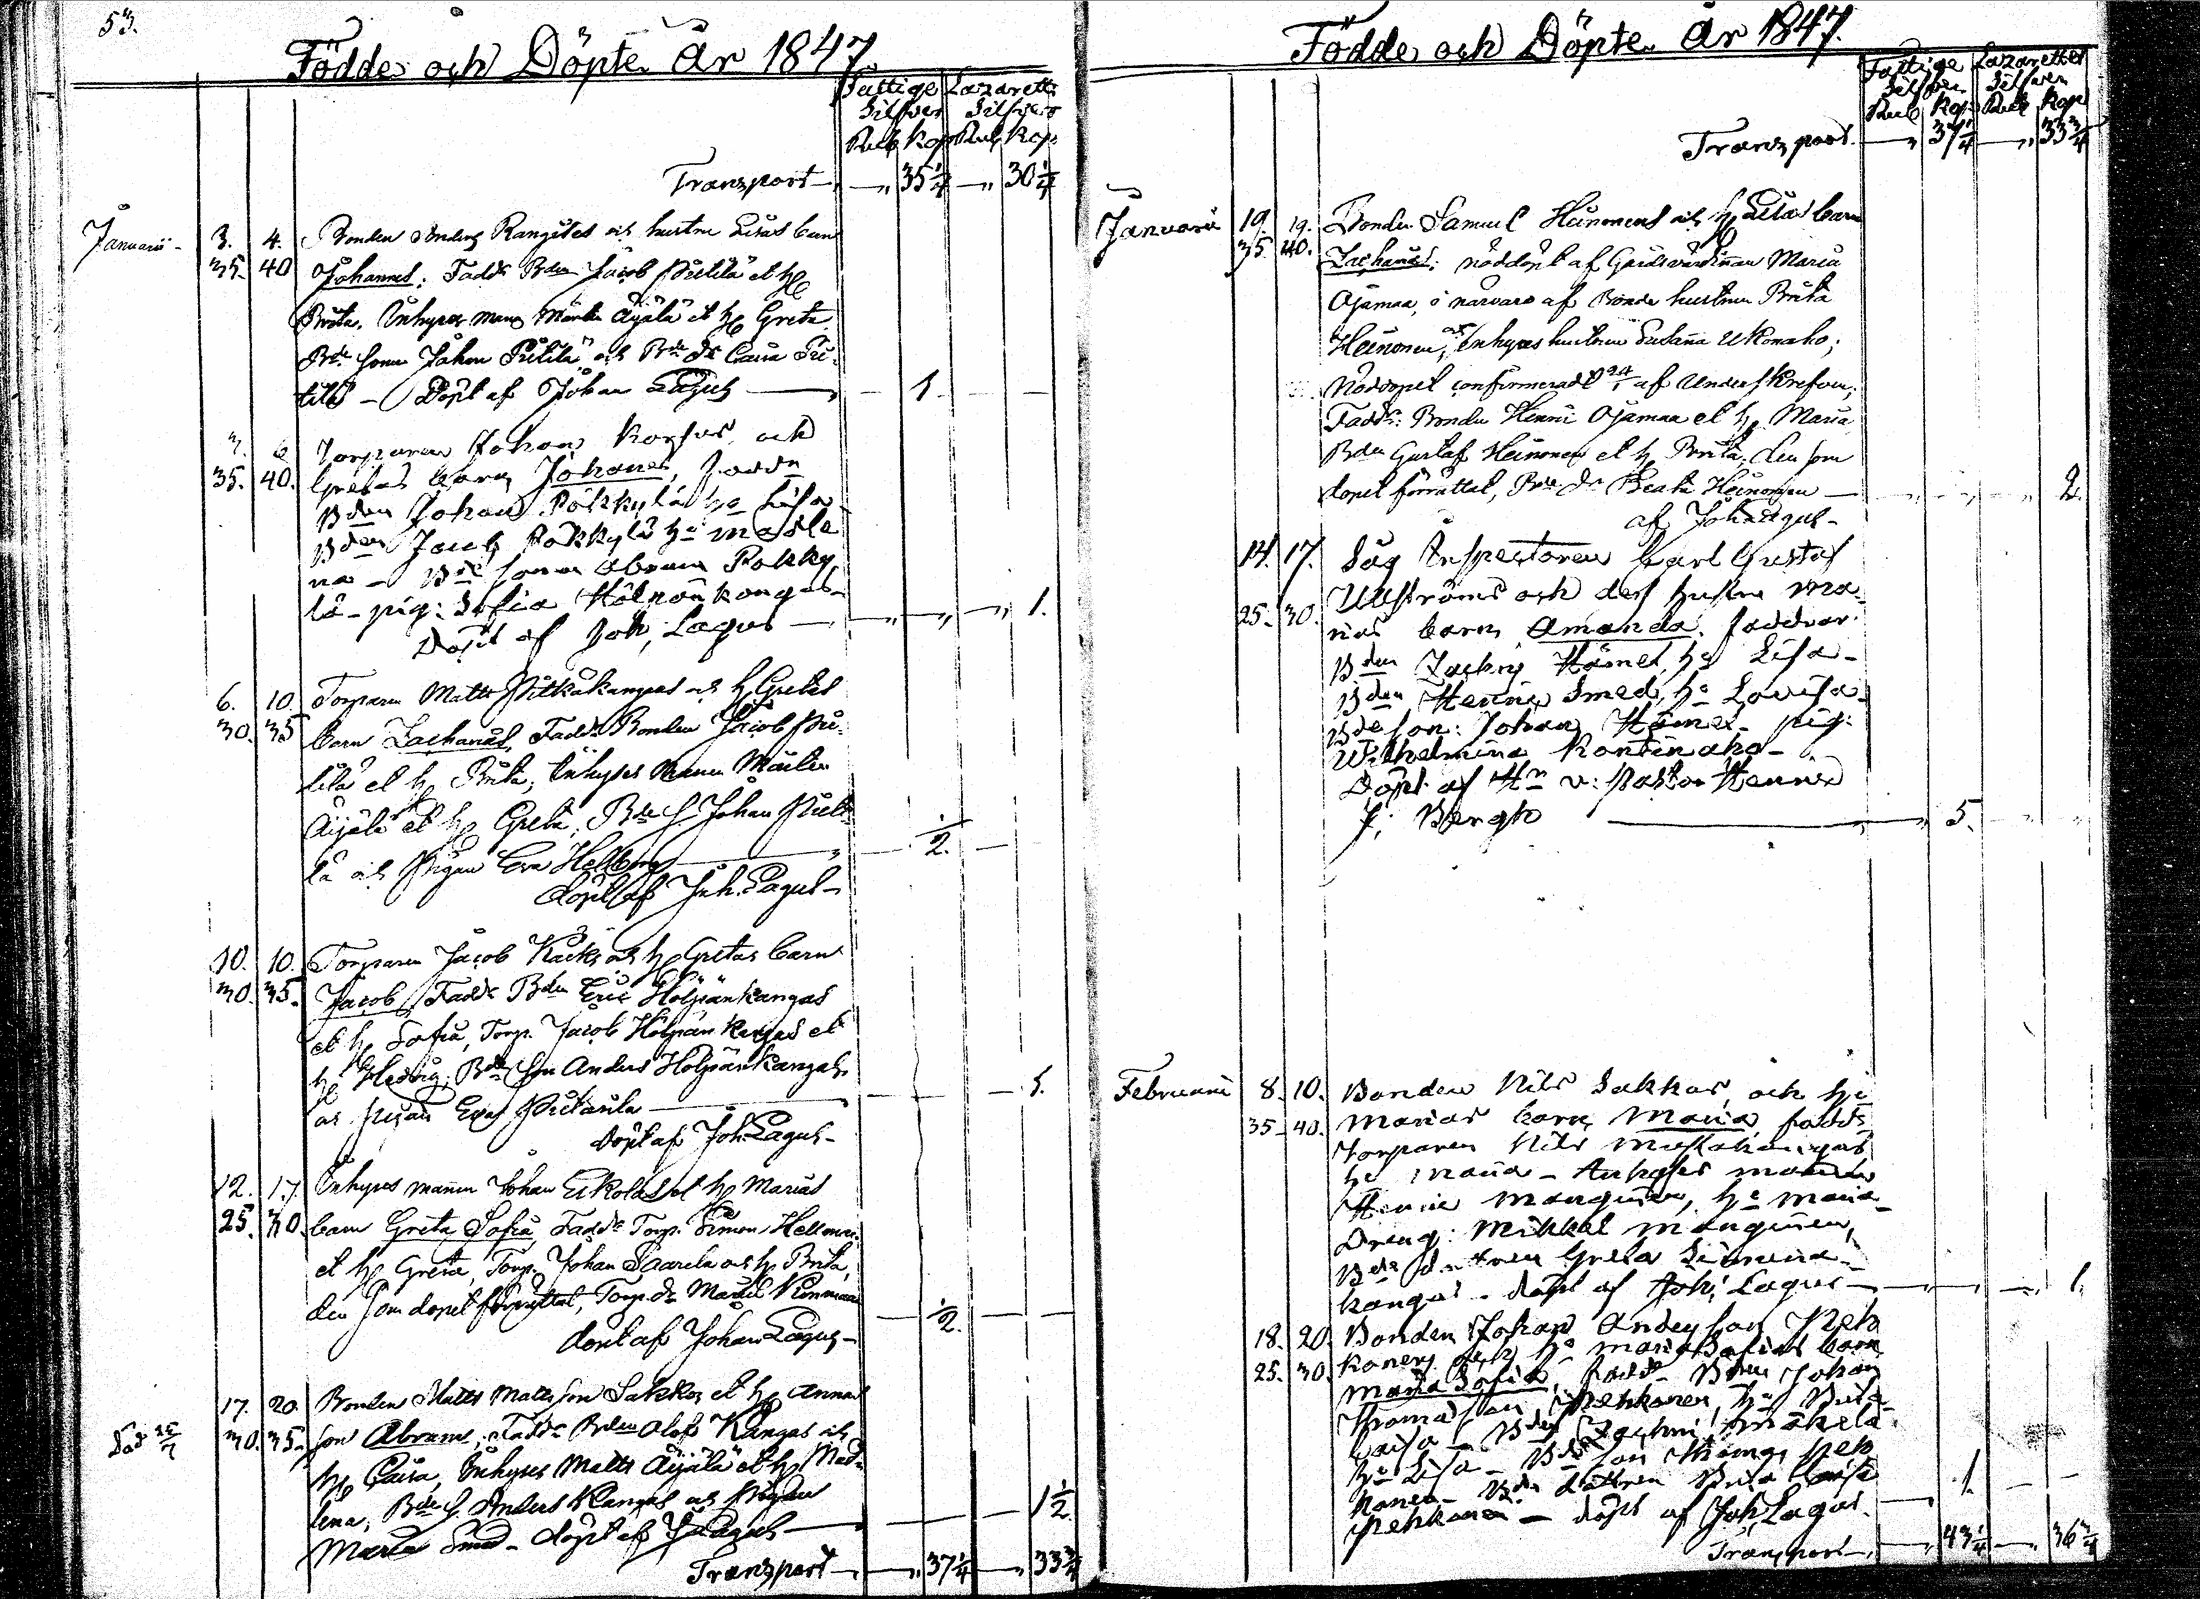 53.
Födde och Döpte År 1847.
Fattige Lazaretts
Silfver Silfver
Rub Kop Rub Kop
Transport — „ 35 1/4 — „ 30 1/4
Januarii 3. 4. Bonden Anders och hustru Lisas barn
35. 40 Johannes; Fadd: Bden Jacob Pietilä et hu
Brita. Inhyses man Mårten Äijälä et hu Greta
Bde sonen Johan Pietilä och Bde dr Caisa Pie-
tilä — Döpt af Johan Lagus — 1.
3. 6 Torparen Johan och
35. 40. Gretas barn Johannes, Fadd
Bden Johan Pökkylä hu Lisa
Bden Jacob Pökkylä hu Magdale
na — Bde sonen Abram Pökky
lä — pig: Sofia Hölpönkangas
Döpt af Joh: Lagus — „ — „ 1.
6. 10. Torparen Matts Pitkäkangas och hu Gretas
30. 35 barn Zacharias, Fadd: Bonden Jacob Pie-
tilä et hu Brita, Inhyses mannen Mårten
Äijälä et hu Greta, Bde S. Johan Pieti-
lä och Pigan Eva Hellberg — 1/2.
döpt af Joh. Lagus —
10. 10. Torparen Jacob och hu Gretas barn
30. 35. Jacob, Fadd: Bden Eric Hölpänkangas
et hu Sofia, Torp. Jacob Hölpänkangas et
hu Hedvig, Bde son Anders Hölpänkangas
och pigan Eva — 1.
döpt af Joh. Lagus —
12. 17. Inhyses mannen Johan Eskolas et hu Marias
25. 30. barn Greta Sofia, Fadd: Torp. Simon
et hu Greta, Torp. Johan Saarela och hu Brita,
den som döpet förrättat, Torp. dr
döpt af Johan Lagus — 1/2.
17. 20. Bonden Matts Mattsson Sakkos et hu Annas
30. 35. son Abram, Fadd: Bden Olof Kangas och
Död 25/7
hu Caisa, Inhyses Matts Äijälä et hu Mad-
lena, Bde S. Anders Kangas och pigan
Maria Smed — döpt af J. Lagus — 1 1/2
Transport — „ 37 1/4 — „ 33 3/4
Födde och Döpte År 1847.
Fattige Lazarettet
Silfver Silfver
Rub Kop Rub Kop
Transport — „ 37 1/4 — „ 33 3/4
Januarii 19. 19. Bonden Samuel Heinonens och hu Lisas barn
35. 40. Zacharias; nöddöpt af Gårdsvärdinnan Maria
Ojamaa, i närvaro af Bonde hustrun Brita
Heinonen, och Inhyses hustrun Susanna Ukonaho;
Nöddopet confirmeradt 24/1 af Underskrefven;
Fadd: Bonden Henric Ojamaa et hu Maria
Bden Gustaf Heinonen et hu Brita, den som
dopet förrättat, Bde dr Beata Heinonen — 2.
af Joh Lagus —
14. 17. Såg Inspectoren Carl Gustaf
25. 30. Ullströms och dess hustru Ma-
rias barn Amanda. Faddrar.
Bden Zachris Hämet, hu Lisa —
Bden Henric Smed, hu Lovisa —
Bde son: Johan Hämet — pig:
Wilhelmina Kontinaho —
Döpt af Hr v: Pastor Henric
J: Bergh — 5.
Februarii 8. 10. Bonden Nils Sakkos, och hu
35. 40. Marias barn Maria Fadd:
Torparen Nils Mustakangas
hu Maria — Inhyses mannen
Henric Manguinen, hu Maria —
Dräng: Mikkel Manguinen,
Bde dottren Greta
kangas — döpt af Joh: Lagus — 1.
18. 20. Bonden Johan Andersson Peh
25. 30. konens och hu Maria Sofias barn
Maria Sofia, Fadd: Bden Johan
Thomasson Pehkonen, hu Brita
Caisa — Bden Zachris Mäkelä
hu Lisa — Bde son Thomas Peh
konen — Bde dottren Brita Caisa
Pehkonen — döpt af Joh: Lagus — 1.
Transport — „ 43 1/4 — „ 36 3/4